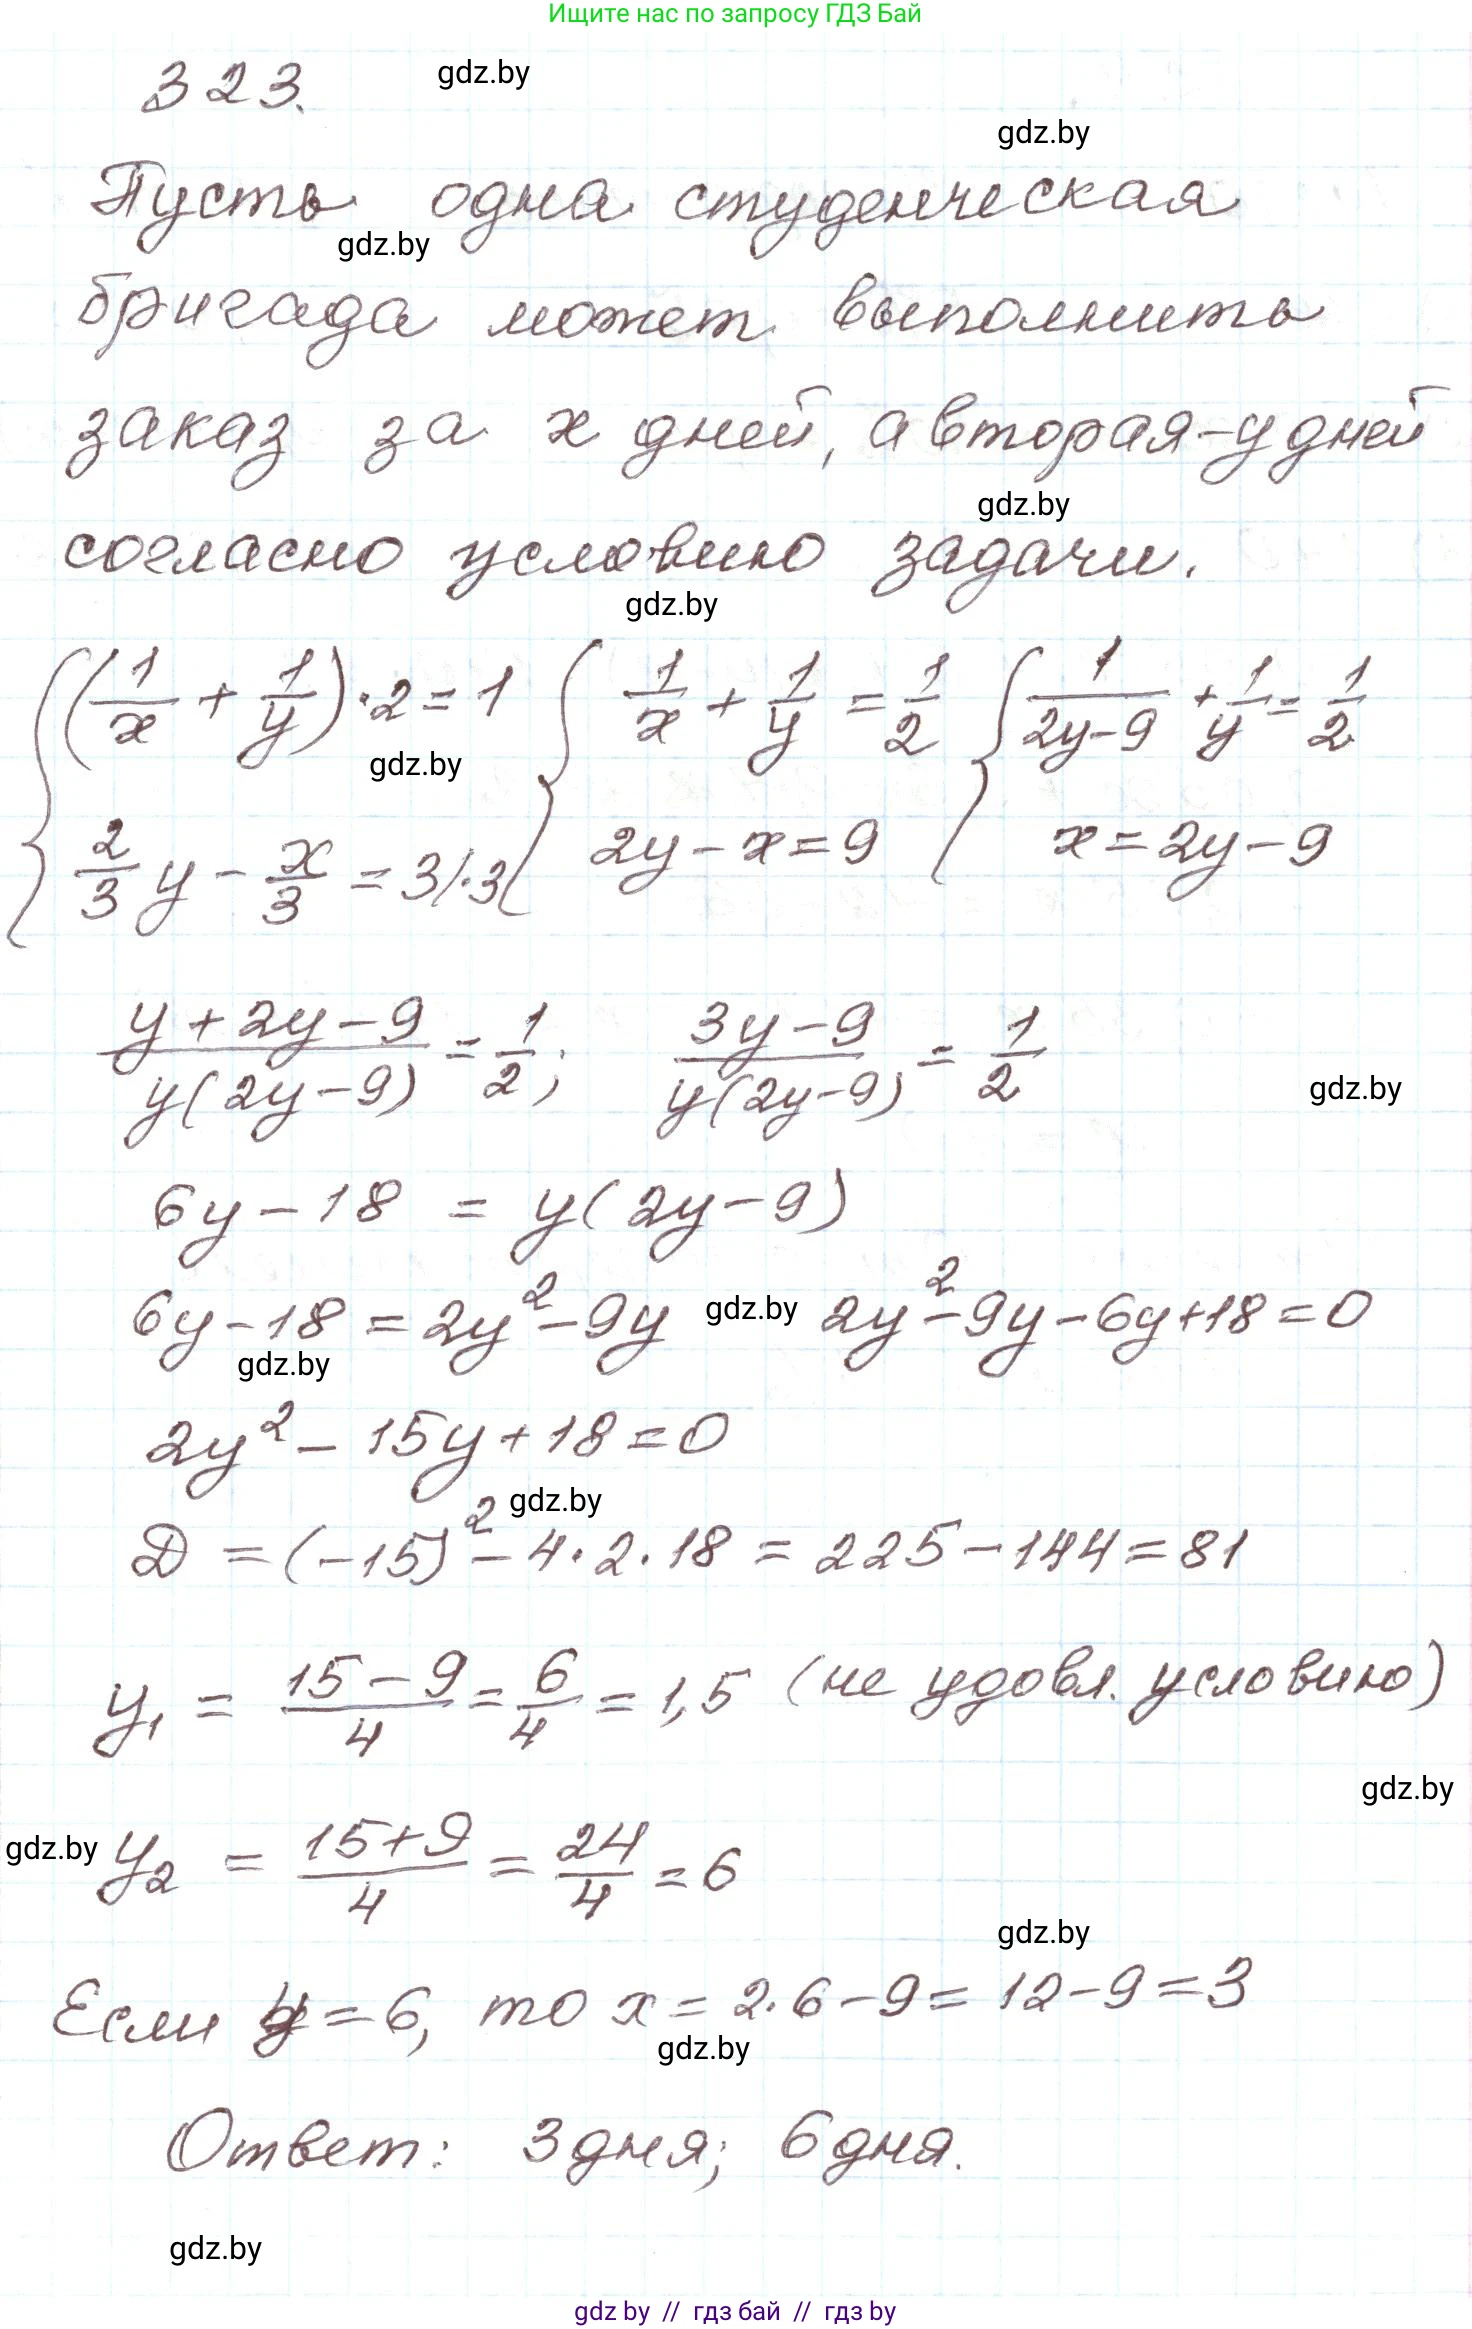 Ищите нас по запросу ГДЗ Бай
323. gdz.by
gdz.by
Пусть одна студенческая
gdz.by
бригада может выполнить
заказ за x дней, а вторая – y дней
gdz.by
согласно условию задачи.
gdz.by
{(1/x + 1/y) · 2 = 1 {1/x + 1/y = 1/2 {1/(2y-9) + 1/y = 1/2
gdz.by
2/3 y - x/3 = 3 | · 3 2y - x = 9 x = 2y - 9
(y + 2y - 9)/(y(2y - 9)) = 1/2; (3y - 9)/(y(2y - 9)) = 1/2
gdz.by
6y - 18 = y(2y - 9)
6y - 18 = 2y² - 9y gdz.by 2y² - 9y - 6y + 18 = 0
gdz.by
2y² - 15y + 18 = 0
gdz.by
D = (-15)² - 4 · 2 · 18 = 225 - 144 = 81
y₁ = (15 - 9)/4 = 6/4 = 1,5 (не удовл. условию)
gdz.by
gdz.by y₂ = (15 + 9)/4 = 24/4 = 6
gdz.by
Если y = 6, то x = 2 · 6 - 9 = 12 - 9 = 3
gdz.by
Ответ: 3 дня; 6 дня.
gdz.by
gdz by // гдз бай // гдз by